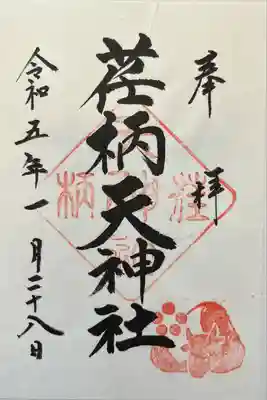 奉拝
荏柄天神社
令和五年一月二十八日